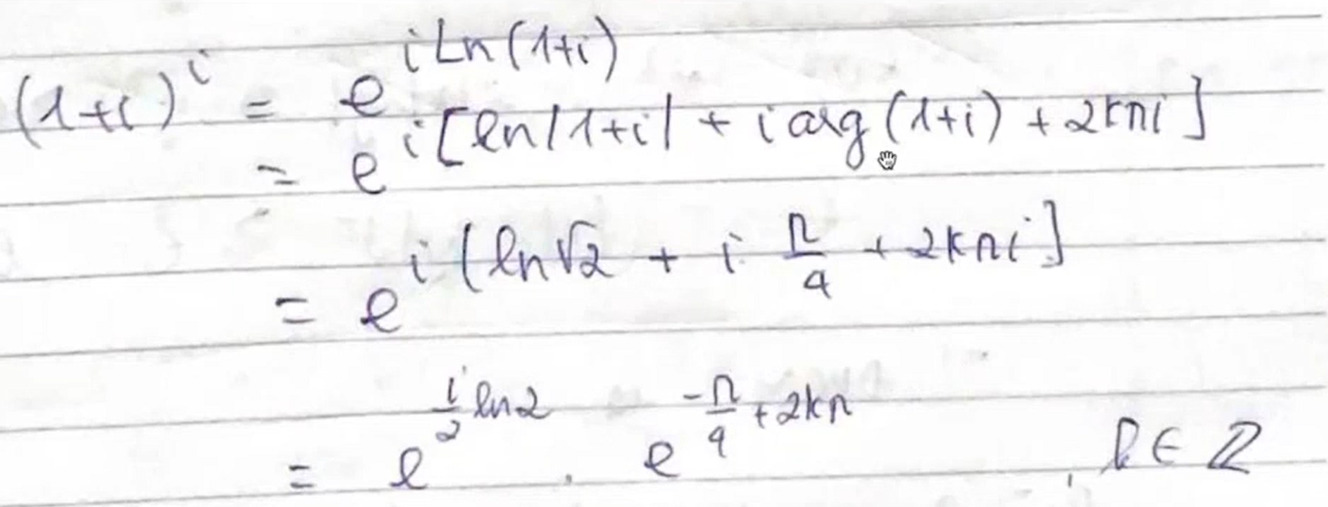 (1+i)^i = e^{i Ln(1+i)}
= e^{i[ln|1+i| + i arg(1+i) + 2kπi]}
= e^{i(ln√2 + i π/4 + 2kπi]}
= e^{i/2 ln2} . e^{-π/4 + 2kπ} , k ∈ Z